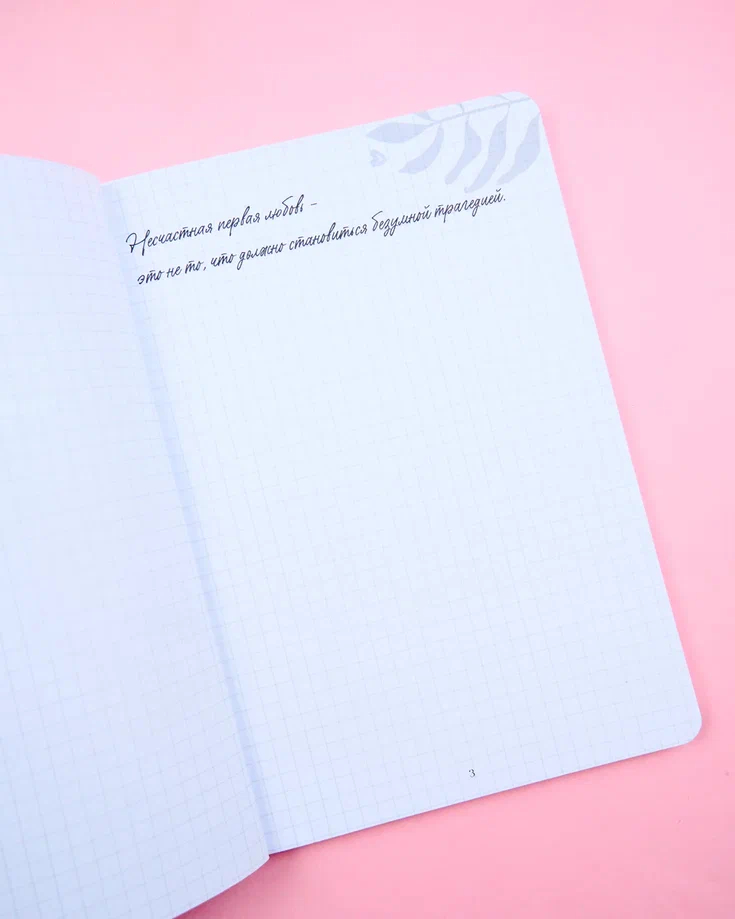 Несчастная первая любовь –
это не то, что должно становиться безумной трагедией.
3